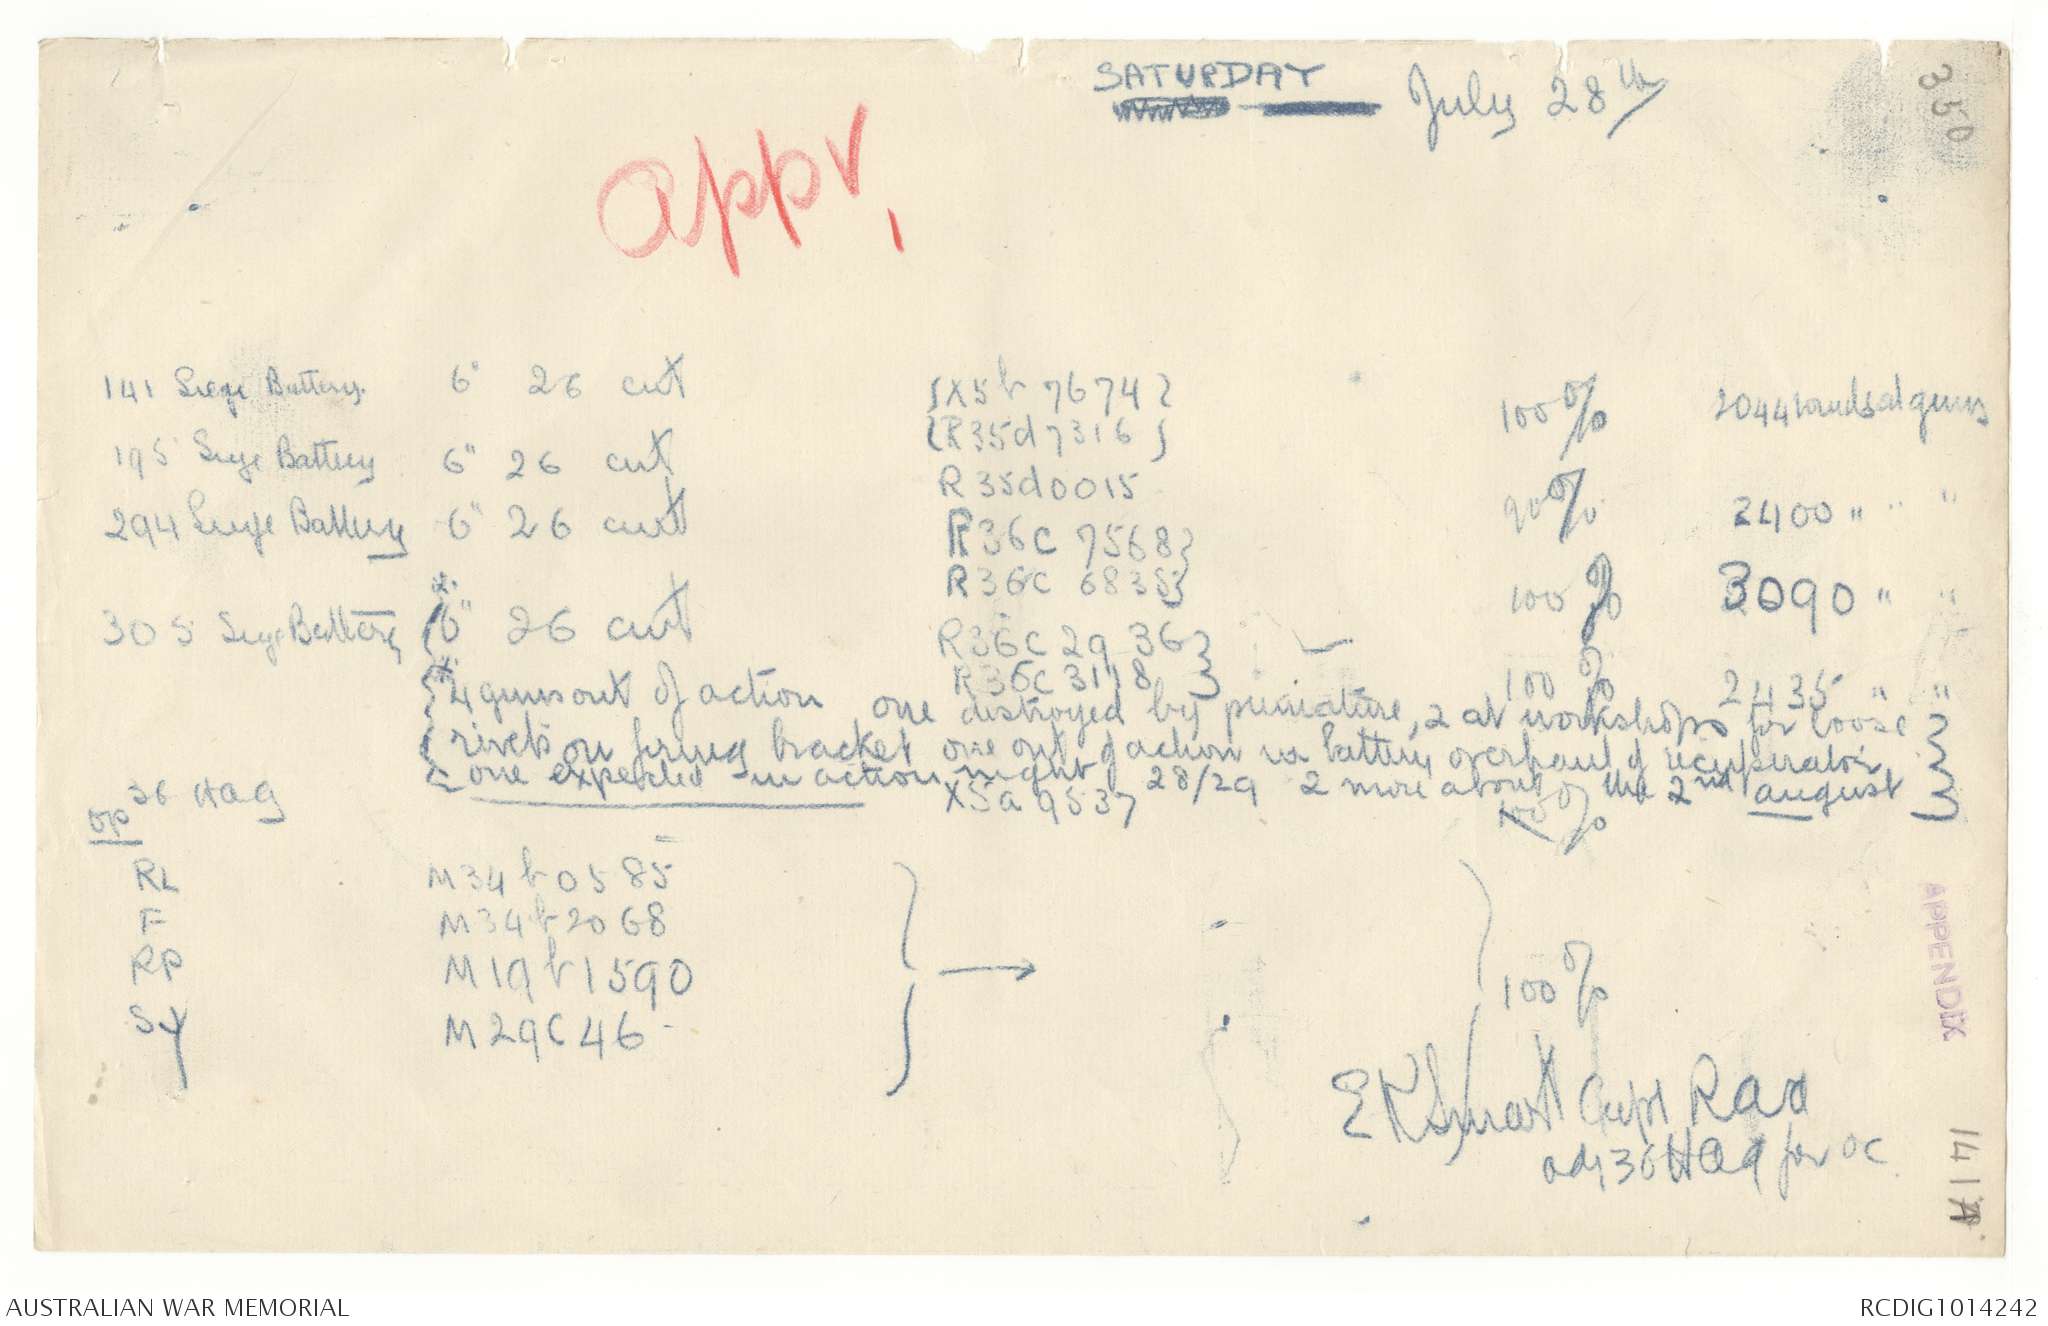 SATURDAY July 28th
350
appx 1
141 Siege Battery. 6" 26 cwt {X5b 7674} 100% 2044 rounds at guns
{R35d7316}
195 Siege Battery 6" 26 cwt R35d0015 90% 2400 " " "
294 Siege Battery 6" 26 cwt R36C 7568} 100% 3090 " "
R36C 6835}
305 Siege Battery * {6" 26 cwt R36C 29 36} 100% 2435 " "
R36C 3118}
{* 4 guns out of action one destroyed by premature, 2 at workshops for loose
rivets on firing bracket one out of action in battery overhaul of recuperator
one expected in action night 28/29 2 more about the 2nd august}
36 Hag X5a 9537 100%
OP
RL M34b0585
F M34b2068
RP M19b1590 100%
SY M29C46 -
E K Smart Capt RAA
adj 36 HAG for OC
APPENDIX
141A
AUSTRALIAN WAR MEMORIAL
RCDIG1014242